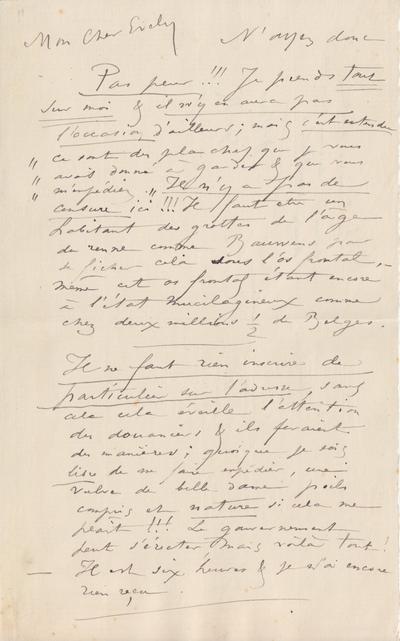 Mon Cher Evely N'ayez donc
Pas peur !!! Je prends tout
sur moi & il n'y en aura pas
l'occasion d'ailleurs ; mais c'est entendu
„ ce sont des planches que je vous
„ avais donné à garder & que vous
„ m'expediez „ Il n'y a pas de
censure ici !!! Il faut être un
habitant des grottes de l'age
du renne comme Bauwens pour
se ficher cela dans l'os frontal, –
même cet os frontal étant encore
à l'état mucilagineux comme
chez deux millions ½ de Belges.
Il ne faut rien inscrire de
particulier sur l'adresse, sans
cela cela éveille l'attention
des douaniers & ils feraient
des manières ; quoique je sois
libre de me faire expédier, une
vulve de belle dame poils
compris et nature si cela me
plait !!! Le gouvernement
peut s'
mais voilà tout !
— Il est six heures & je n'ai encore
rien reçu.